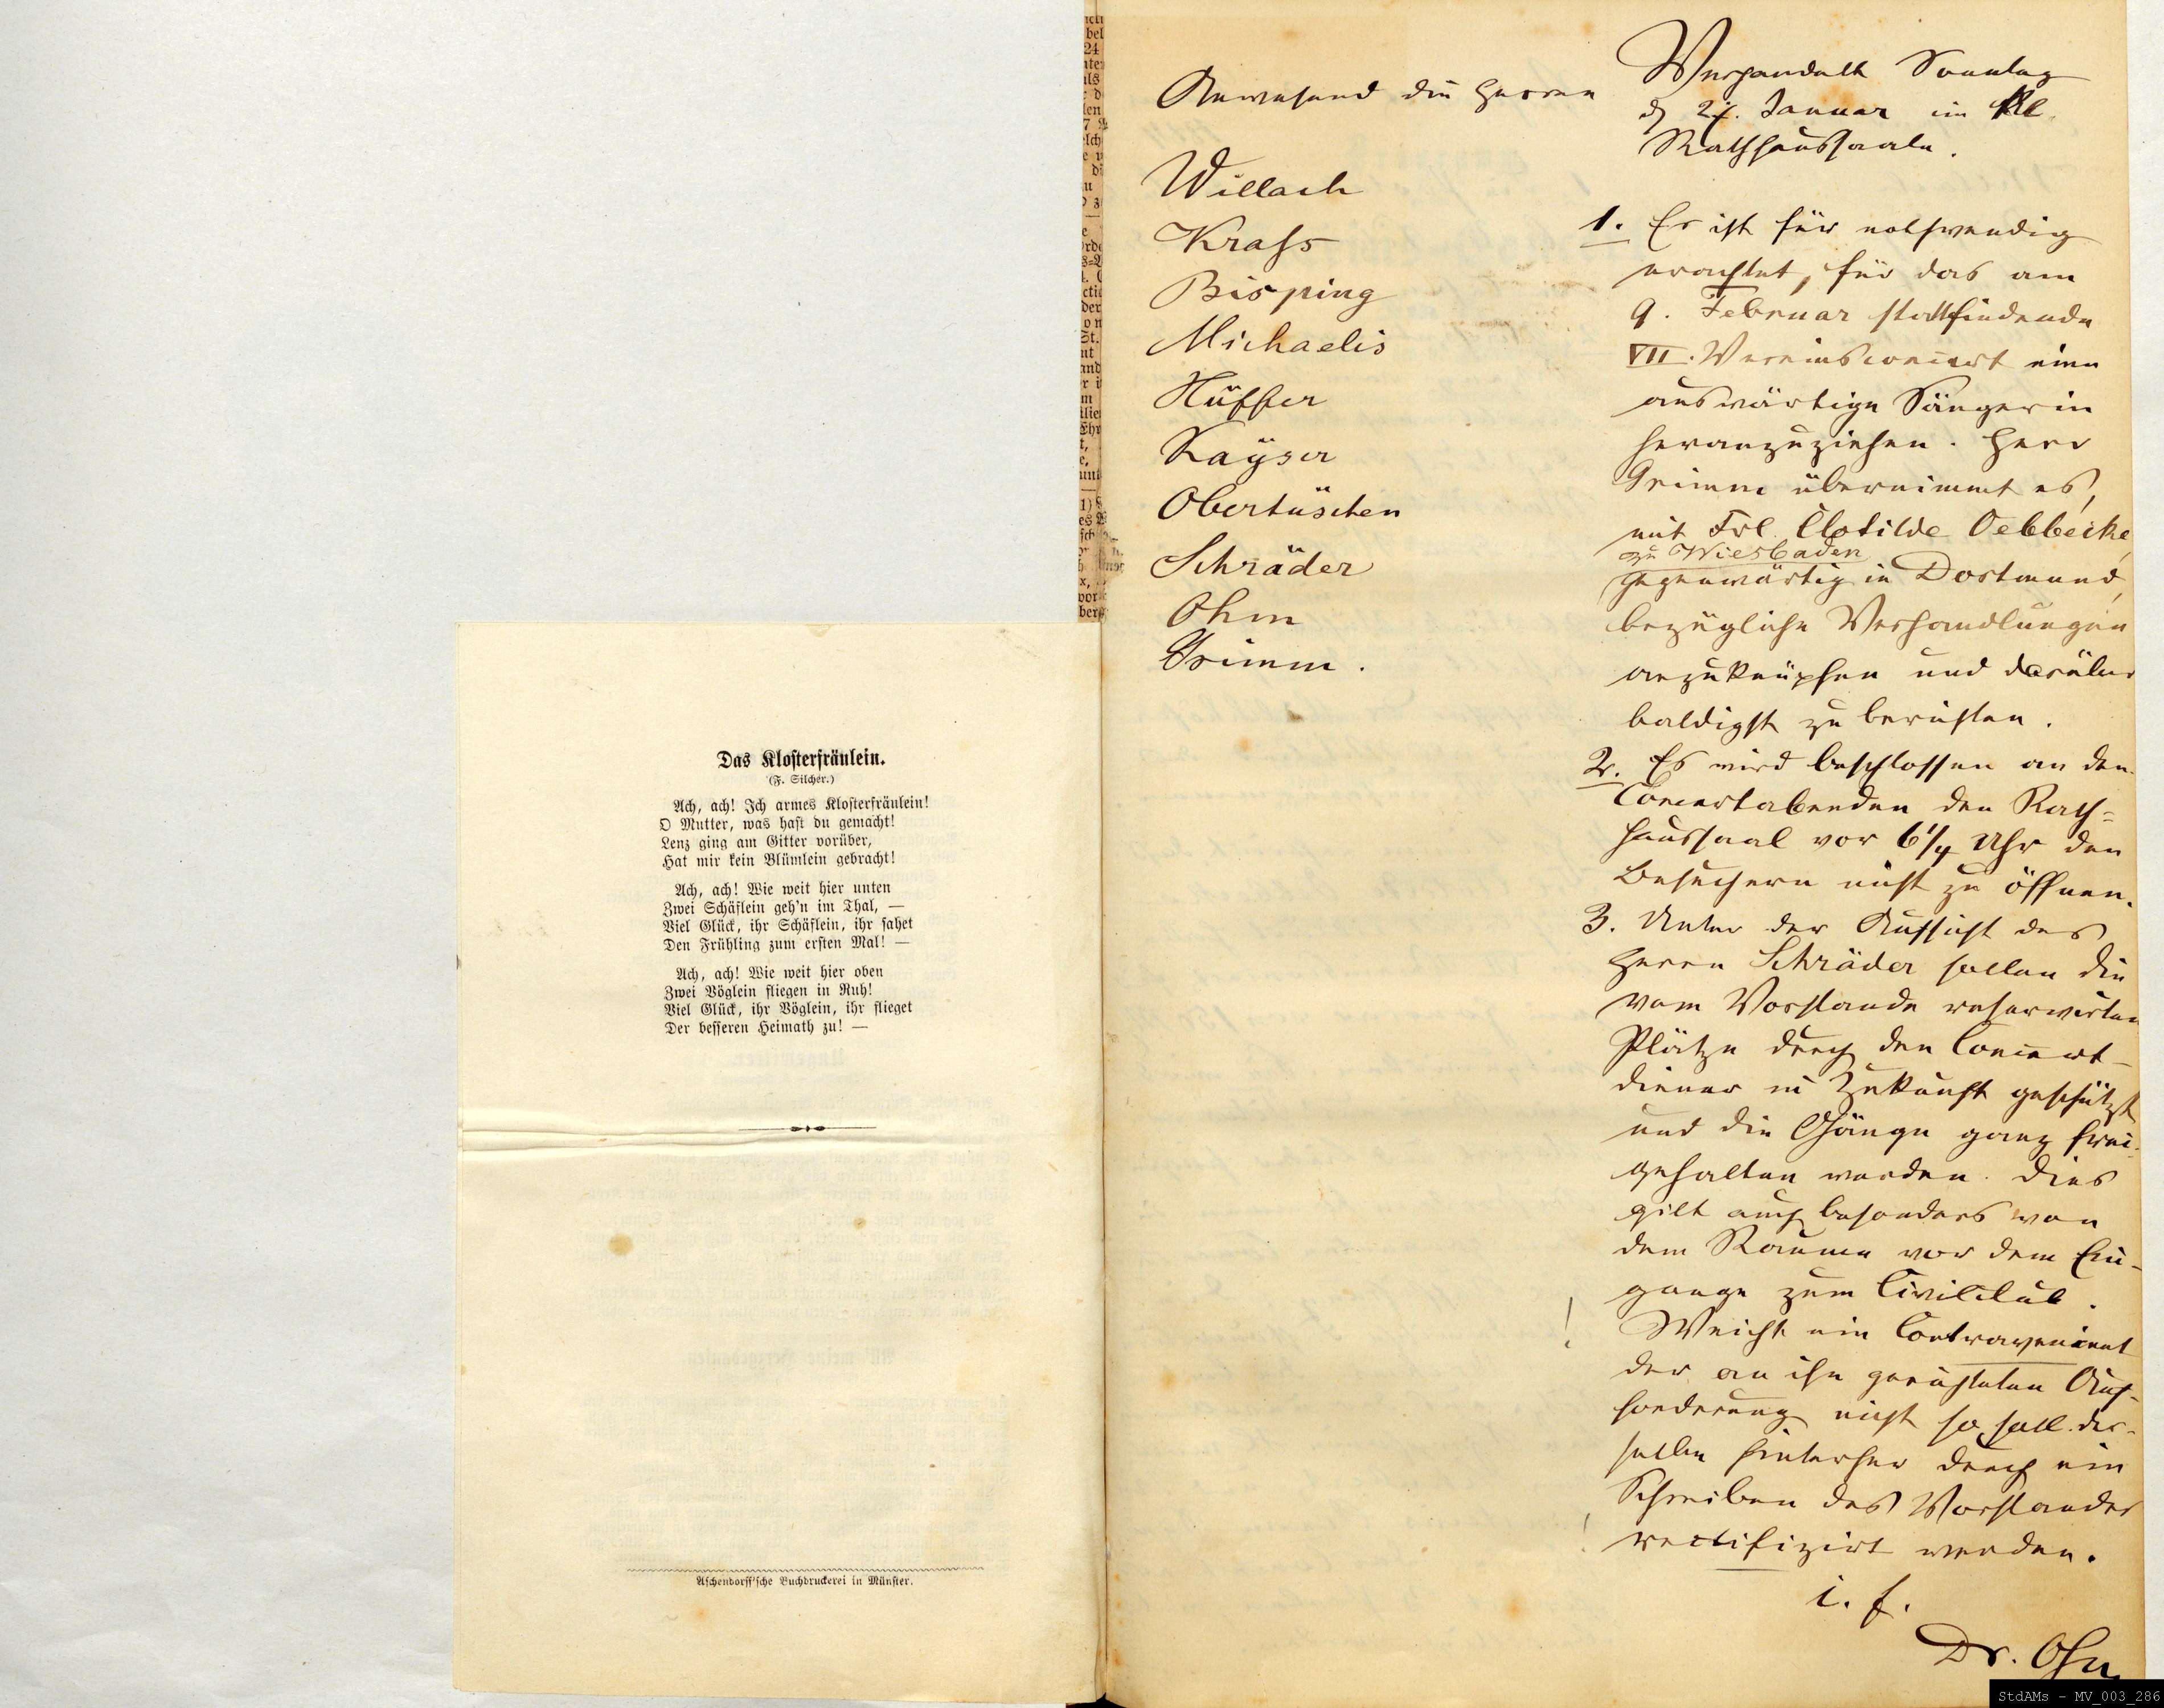 Das Klosterfräulein.
(F. Silcher.)
Ach, ach! Ich armes Klosterfräulein!
O Mutter, was hast du gemacht!
Lenz ging am Gitter vorüber,
Hat mir kein Blümlein gebracht!
Ach, ach! Wie weit hier unten
Zwei Schäflein geh'n im Thal, —
Viel Glück, ihr Schäflein, ihr sahet
Den Frühling zum ersten Mal! —
Ach, ach! Wie weit hier oben
Zwei Vöglein fliegen in Ruh!
Viel Glück, ihr Vöglein, ihr flieget
Der besseren Heimath zu! —
Aschendorff'sche Buchdruckerei in Münster.
Anwesend die Herren
Willach
Krass
Bisping
Michaelis
Hüffer
Kayser
Obertüschen
Schräder
Ohm
Grimm.
Verhandelt Sonntag
d. Januar im kl.
Rathhaussaale.
1. Es ist für nothwendig
erachtet, für das am
9. Februar stattfindende
VII. Vereinsconcert eine
auswärtige Sängerin
heranzuziehen. Herr
Grimm übernimmt es,
mit Frl. Clotilde Oebbeike,
zu Wiesbaden
gegenwärtig in Dortmund,
bezügliche Verhandlungen
anzuknüpfen und darüber
baldigst zu berichten.
2. Es wird beschlossen an den
Concertabenden den Rath=
haussaal vor 6 1/4 Uhr den
Besuchern nicht zu öffnen.
3. Unter der Aufsicht des
Herrn Schräder sollen die
vom Vorstande reservirten
Plätze durch den Concert-
diener in Zukunft geschützt
und die Gänge ganz frei-
gehalten werden. Dies
gilt auch besonders von
dem Raume vor dem Ein-
gange zum Civilclub.
! Weicht ein Contravenient
der an ihn gerichteten Auf-
forderung nicht so soll der-
selbe hinterher durch ein
Schreiben des Vorstandes
! rectifizirt werden.
i. f.
Dr. Ohm
StdAMs - MV_003_286